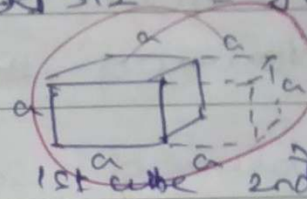 a a
a a
a a
1st cube 2nd